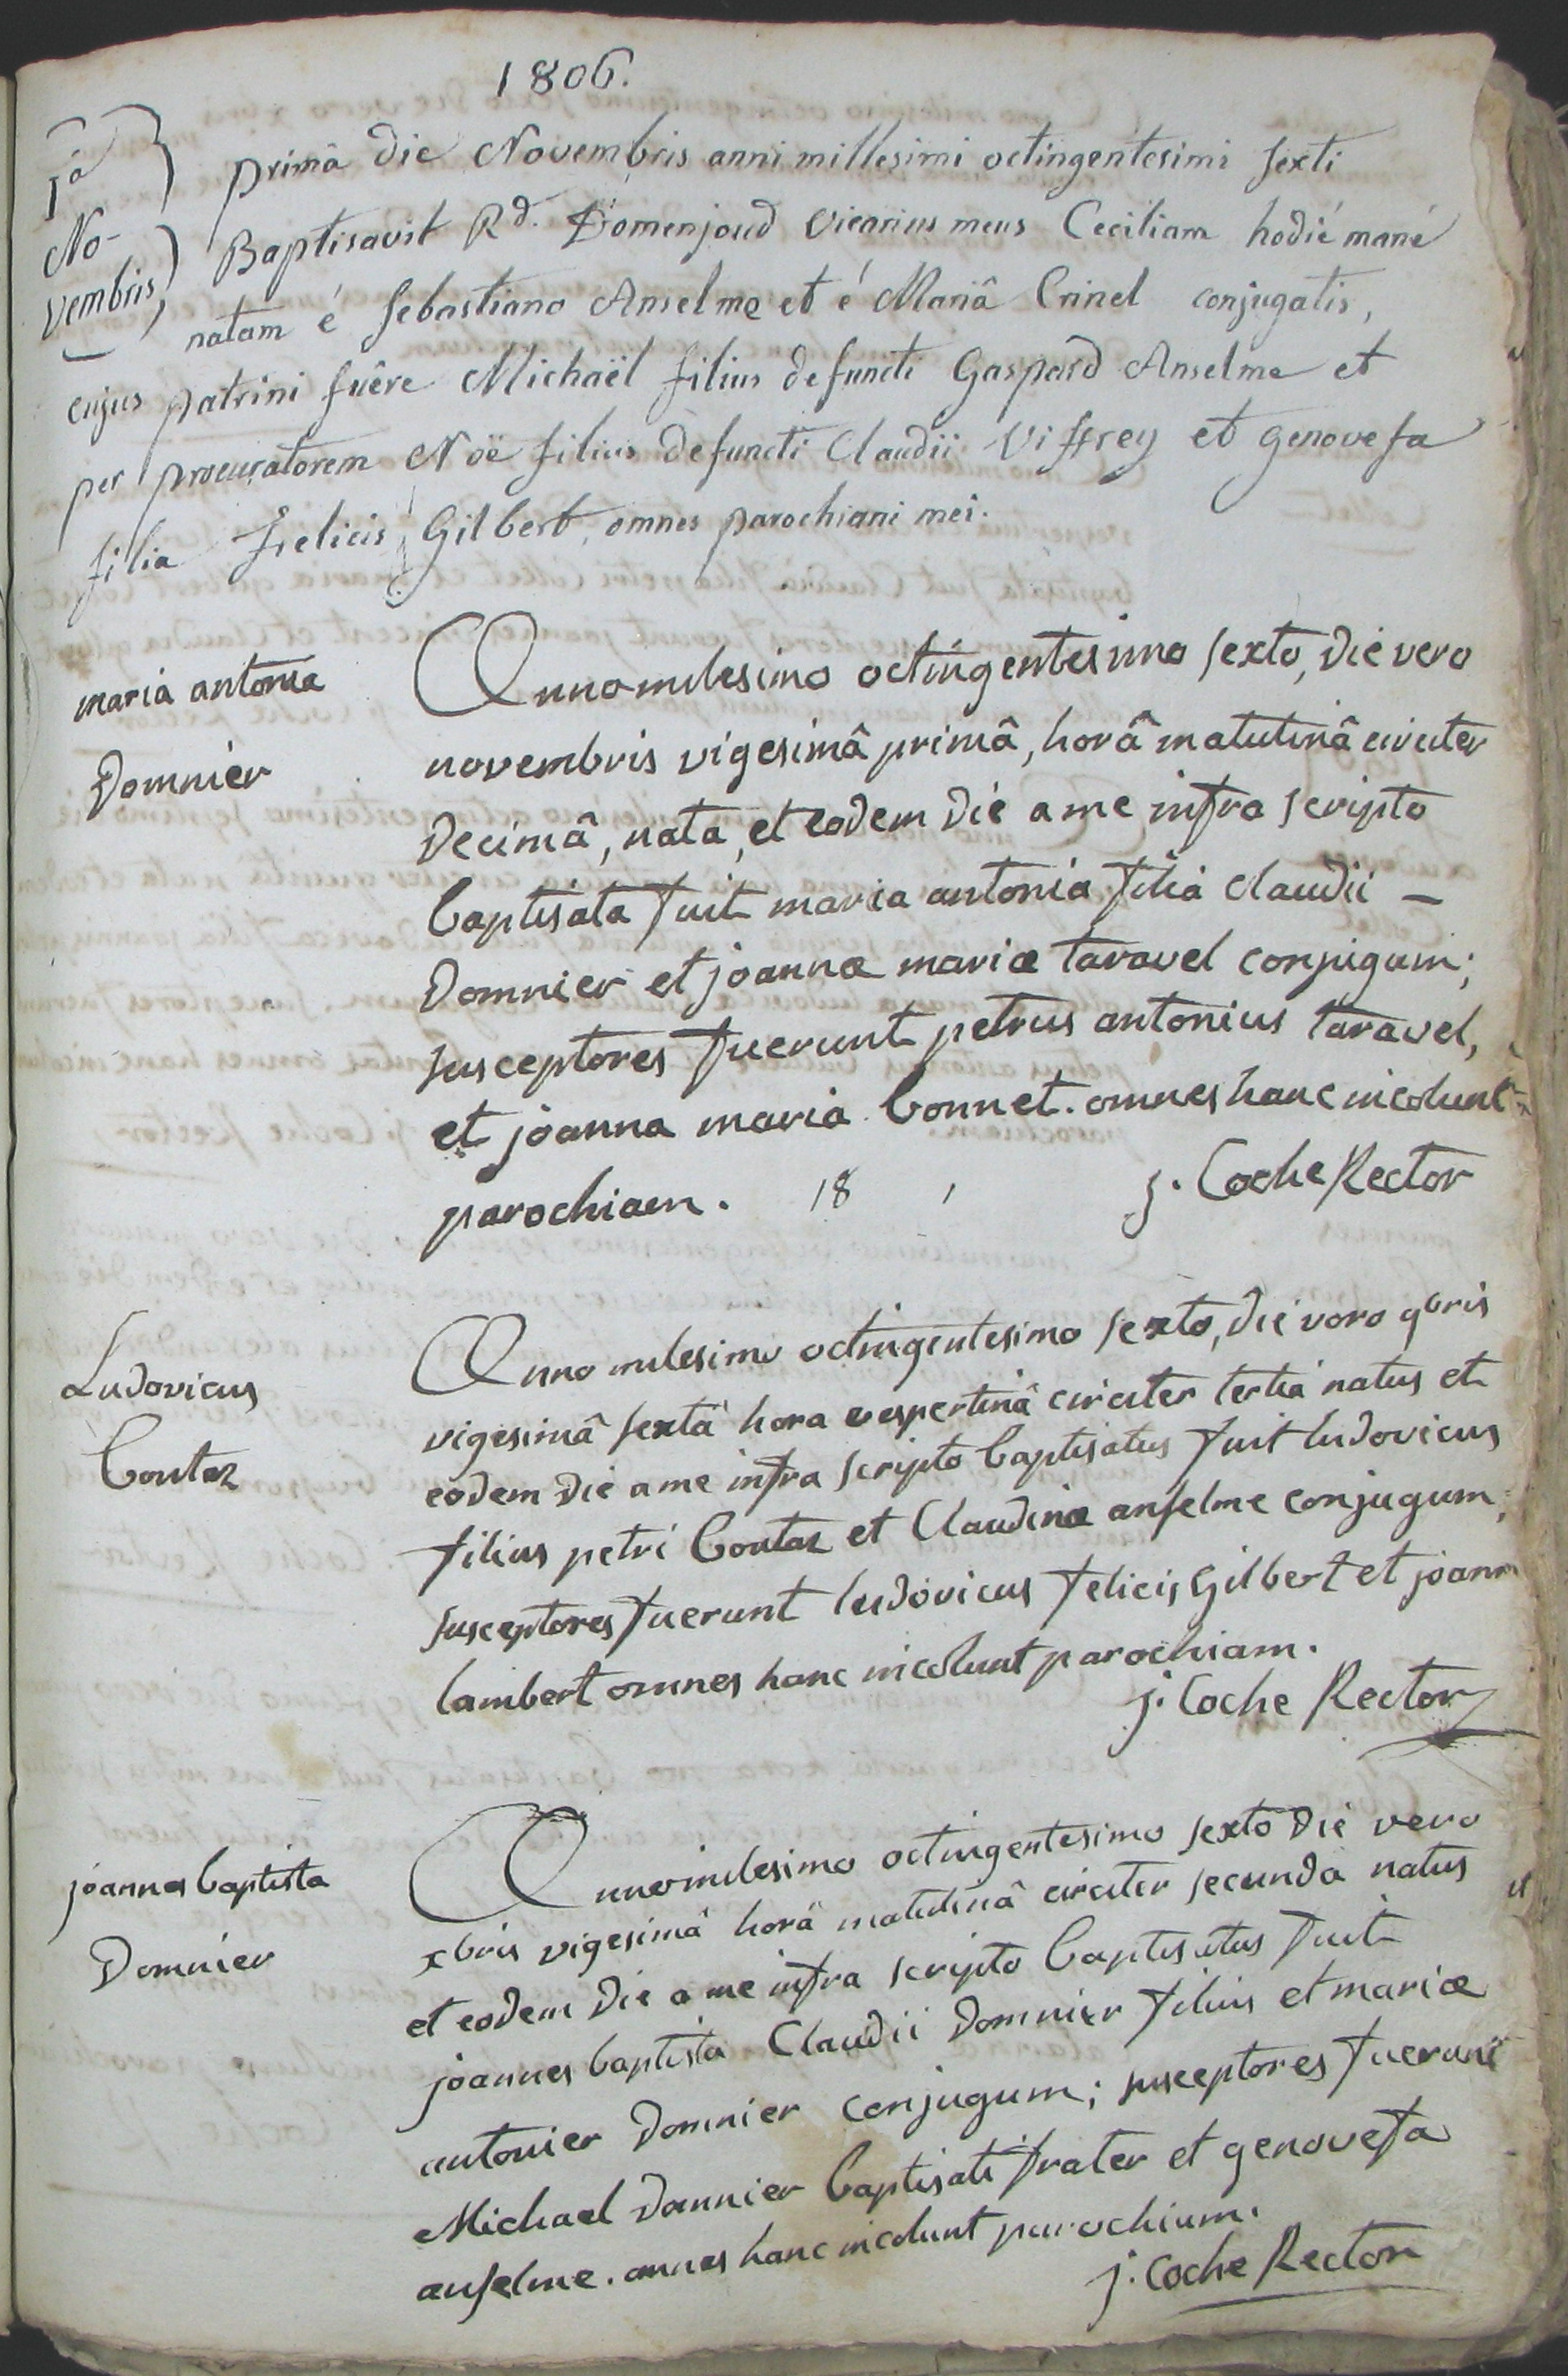 1806.
1a
No-
vembris,
primâ die Novembris anni millesimi octingentesimi sexti
Baptisavit Rd. Domenjoud vicarius meus Ceciliam hodié mané
natam é Sebastiano Anselme et é Mariâ Crinel conjugatis,
cujus patrini fuêre Michaël filius defuncti Gaspard Anselme et
per procuratorem Noë filius defuncti Claudii Viffrey et genovefa
filia Felicis Gilbert, omnes parochiani mei.
maria antonia
Domnier
Anno milesimo octingentesimo sexto, die vero
novembris vigesimâ primâ, horâ matutinâ circiter
decimâ, nata, et eodem die a me infra scripto
baptisata fuit maria antonia filia claudii –
Domnier et joannæ mariæ taravel conjugum;
susceptores fuerunt petrus antonius taravel,
et joanna maria bonnet. omnes hanc incolunt
parochiam. 18 j. Coche Rector
Ludovicus
Contaz
Anno milesimo octingentesimo sexto, die vero 9bris
vigesimâ sextâ hora vespertinâ circiter tertia natus et
eodem die a me infra scripto baptisatus fuit ludovicus
filius petri Contaz et Claudinæ anselme conjugum;
susceptores fuerunt ludovicus felicis gilbert et joann
lambert omnes hanc incolunt parochiam.
j. Coche Rector
joannes baptista
Domnier
Anno milesimo octingentesimo sexto die vero
xbris vigesimâ horâ matutinâ circiter secunda natus
et eodem die a me infra scripto baptisatus fuit
joannes baptista Claudii Domnier filius et mariæ
antonier Domnier conjugum; susceptores fuerunt
Michael Domnier baptisati frater et genovefa
anselme. omnes hanc incolunt parochiam.
j. Coche Rector